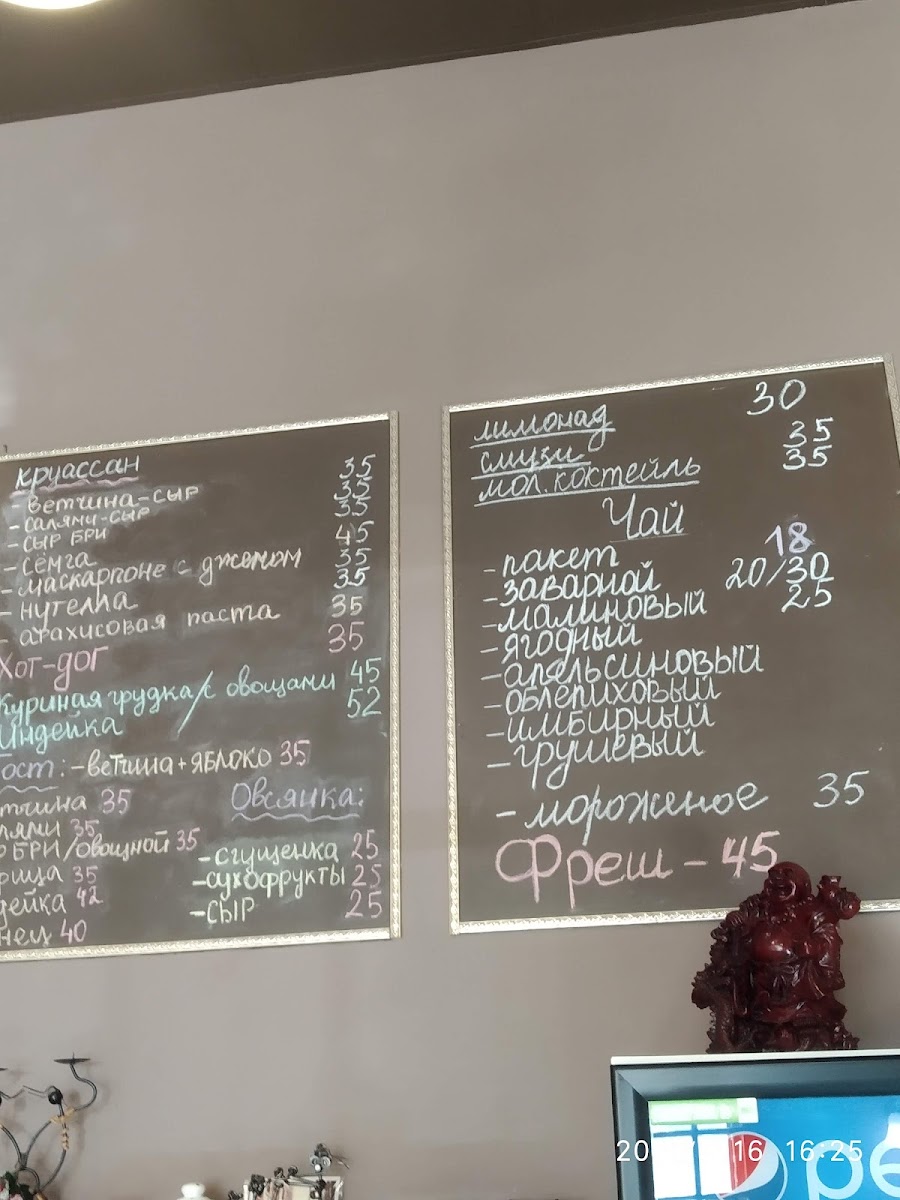 круассан
- ветчина-сыр 35
- салями-сыр 35
- сыр бри 35
- сёмга 45
- маскарпоне с джемом 35
- нутелла 35
- арахисовая паста 35
Хот-дог 35
Куриная грудка/с овощами 45
Индейка 52
ост: - ветчина + яблоко 35
тчина 35
лями 35
БРИ/овощной 35
рица 35
дейка 42
нец 40
Овсянка:
- сгущенка 25
- сухофрукты 25
- сыр 25
лимонад 30
смузи 35
мол. коктейль 35
Чай
- пакет 18
- заварной 20/30
- малиновый 25
- ягодный
- апельсиновый
- облепиховый
- имбирный
- грушевый
- мороженое 35
Фреш - 45
16 16:25
pe